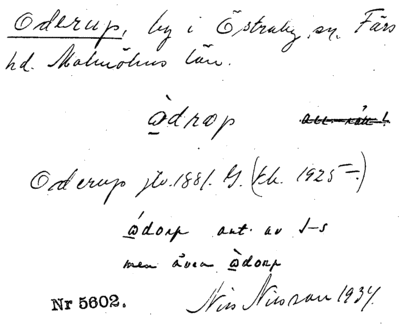 Oderup, by i Östraby sn. Färs
hd. Malmöhus län.
àdrop
Oderup jtv. 1881. G. (kh. 1925 –.)
ádorp ant. av J–s
men även àdorp
Nr 5602.
Nils Nilsson 1934.